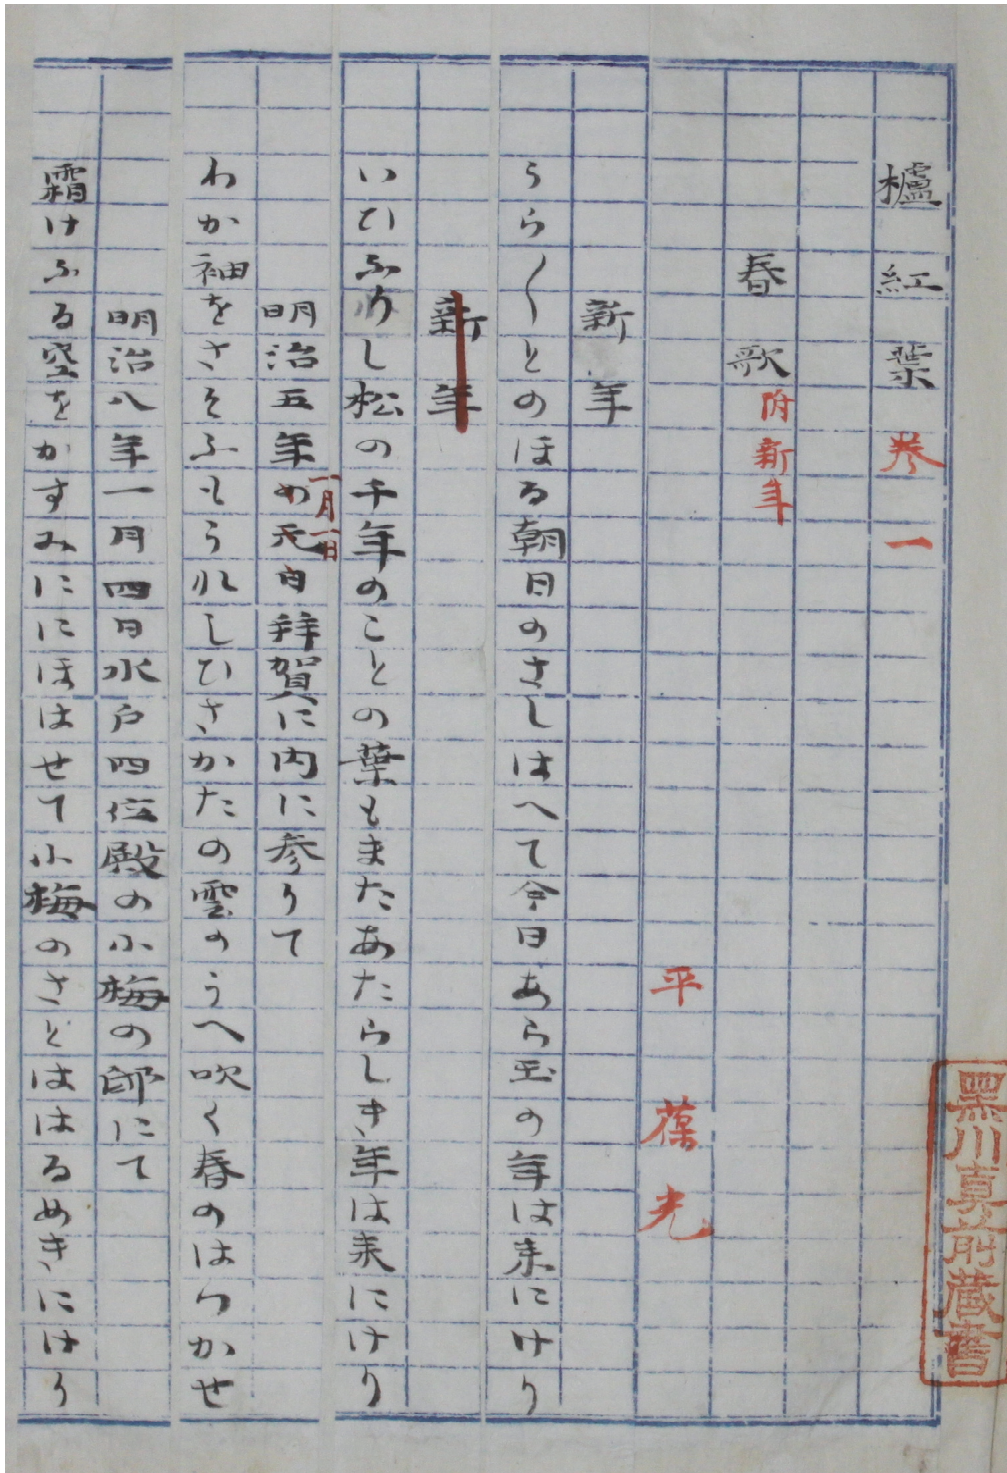 櫨紅葉 巻一
春歌 附新年
平 葆光
新年
うら〳〵とのほる朝日のさしはへて今日あら玉の年は来にけり
新年
いひふりし松の千年のことの葉もまたあたらしき年は来にけり
明治五年の元日一月一日拝賀に内に参りて
わか袖をさそふもうれしひさかたの雲のうへ吹く春のはつかせ
明治八年一月四日水戸四位殿の小梅の邸にて
霜けふる空をかすみににほはせて小梅のさとははるめきにけり
黒川真前蔵書